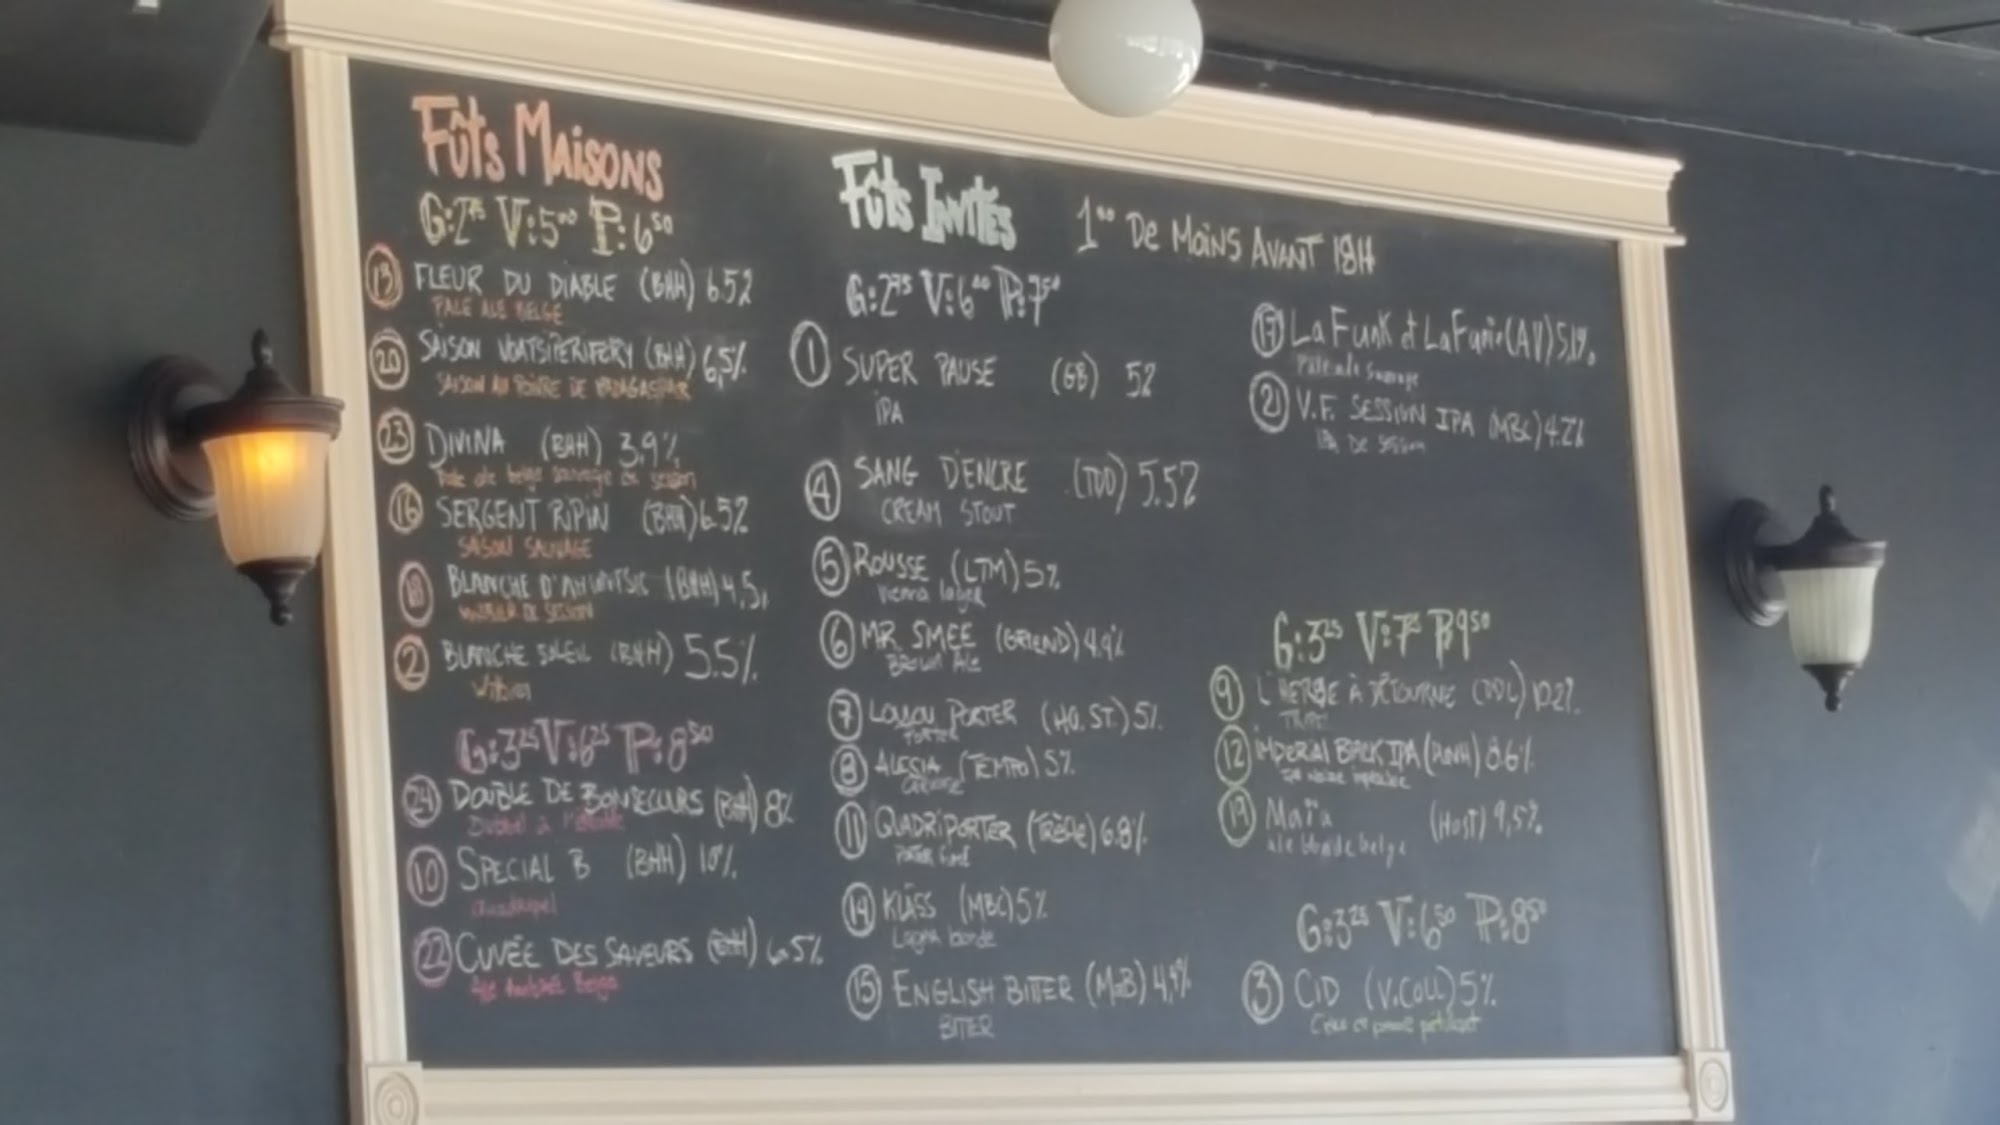 Fûts Maisons
G:2⁷⁵ V:5⁰⁰ P:6⁵⁰
13 FLEUR DU DIABLE (BHH) 6.5%
PALE ALE BELGE
20 SAISON VOATSIPERIFERY (BHH) 6,5%
SAISON AU POIVRE DE MADAGASCAR
23 DIVINA (BHH) 3,9%
Pale ale belge sauvage de session
16 SERGENT RIPIN (BHH) 6.5%
SAISON SAUVAGE
18 BLANCHE D'AHUNTSIC (BHH) 4,5%
DE SESSION
2 BLANCHE SOLEIL (BHH) 5.5%
Witbier
G:3²⁵ V:6²⁵ P:8⁵⁰
24 DOUBLE DE BONSECOURS (BHH) 8%
Dubbel à l'érable
10 SPECIAL B (BHH) 10%
Quadrupel
22 CUVÉE DES SAVEURS (BHH) 6.5%
Ale Belge
Fûts Invités
1⁰⁰ DE MOINS AVANT 18H
G:2⁷⁵ V:6⁰⁰ P:7⁵⁰
1 SUPER PAUSE (GB) 5%
IPA
4 SANG D'ENCRE (TDD) 5.5%
CREAM STOUT
5 ROUSSE (LTM) 5%
Vienna lager
6 MR. SMEE (GRIEND) 4.9%
BROWN ALE
7 LOULOU PORTER (HO. ST.) 5%
PORTER
8 ALESIA (TEMPO) 5%
11 QUADRIPORTER (TRÈFLE) 6.8%
PORTER fumé
14 KLÄSS (MBC) 5%
Lager blonde
15 ENGLISH BITTER (MaB) 4,4%
BITTER
17 La Funk et La Funin (AV) 5,1%
Pale ale Sauvage
21 V.F. SESSION IPA (MBC) 4.2%
IPA DE SESSION
G:3²⁵ V:7²⁵ P:9⁵⁰
9 L'HERBE À DÉTOURNE (DDL) 10.2%
TRIPLE
12 IMPERIAL BLACK IPA 8.6%
IPA Noire impériale
19 Maïa (HOST) 9,5%
ale blonde belge
G:3²⁵ V:6⁵⁰ P:8⁵⁰
3 CID (V.COLL) 5%
Cidre de pomme pétillant